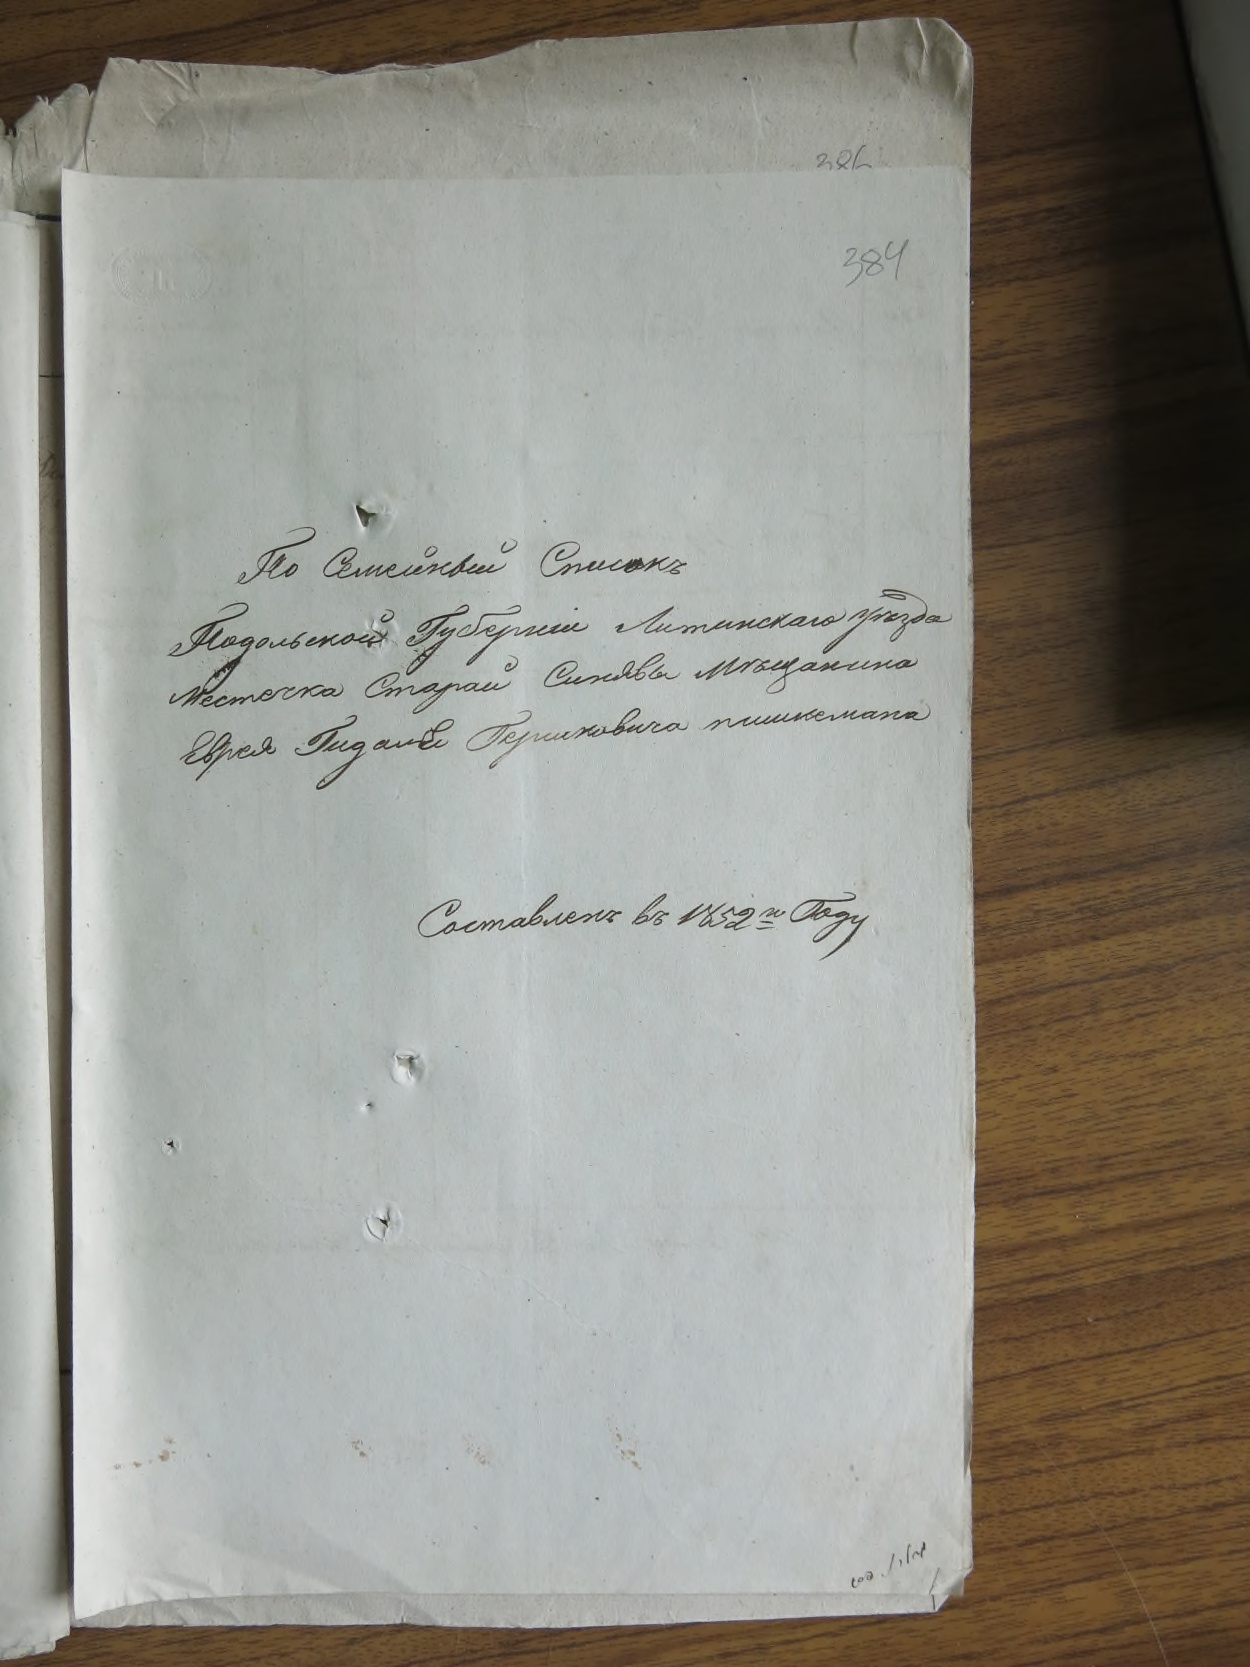 384
По Семейный Списокъ
Подольской Губерніи Литинскаго уѣзда
Местечка Старай Синявы Мѣщанина
Еврея Гидалѣ Гершковича пишкемана
Составленъ въ 1852го Году